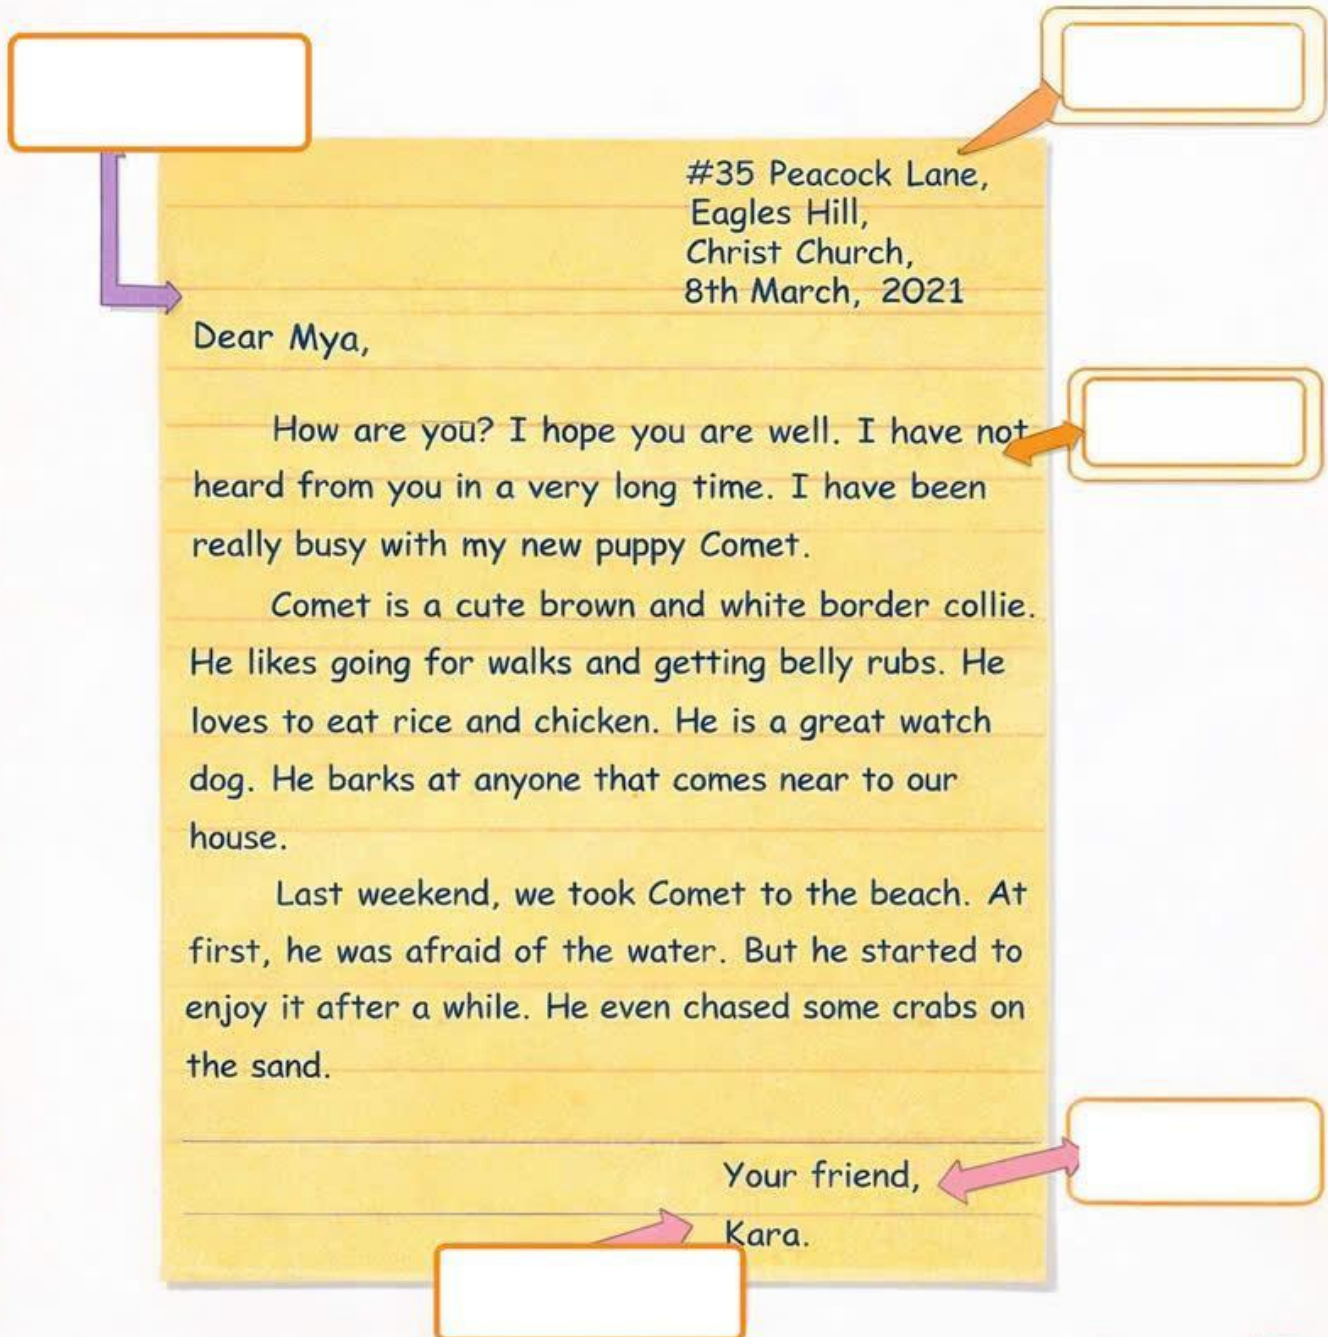 #35 Peacock Lane,
Eagles Hill,
Christ Church,
8th March, 2021
Dear Mya,
How are you? I hope you are well. I have not
heard from you in a very long time. I have been
really busy with my new puppy Comet.
Comet is a cute brown and white border collie.
He likes going for walks and getting belly rubs. He
loves to eat rice and chicken. He is a great watch
dog. He barks at anyone that comes near to our
house.
Last weekend, we took Comet to the beach. At
first, he was afraid of the water. But he started to
enjoy it after a while. He even chased some crabs on
the sand.
Your friend,
Kara.